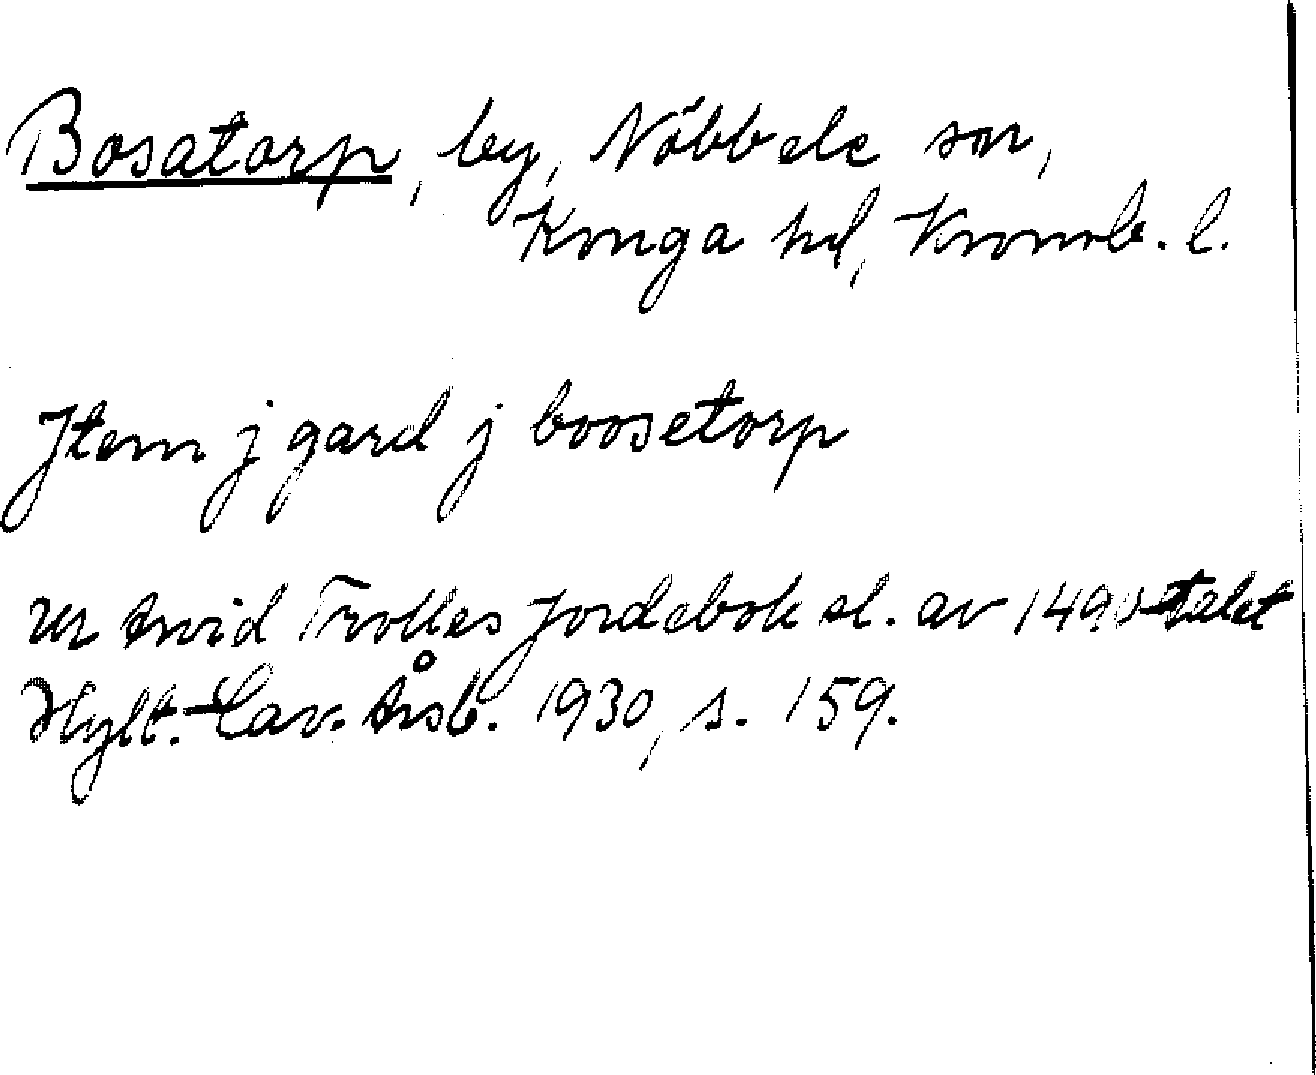 Bosatorp, by, Nöbbele sn,
Konga hd, Kronob. l.
Jtem j gard j boosetorp
Ur Arvid Trolles Jordebok sl. av 1490-talet
Hylt.-Cav. Årsb. 1930, s. 159.